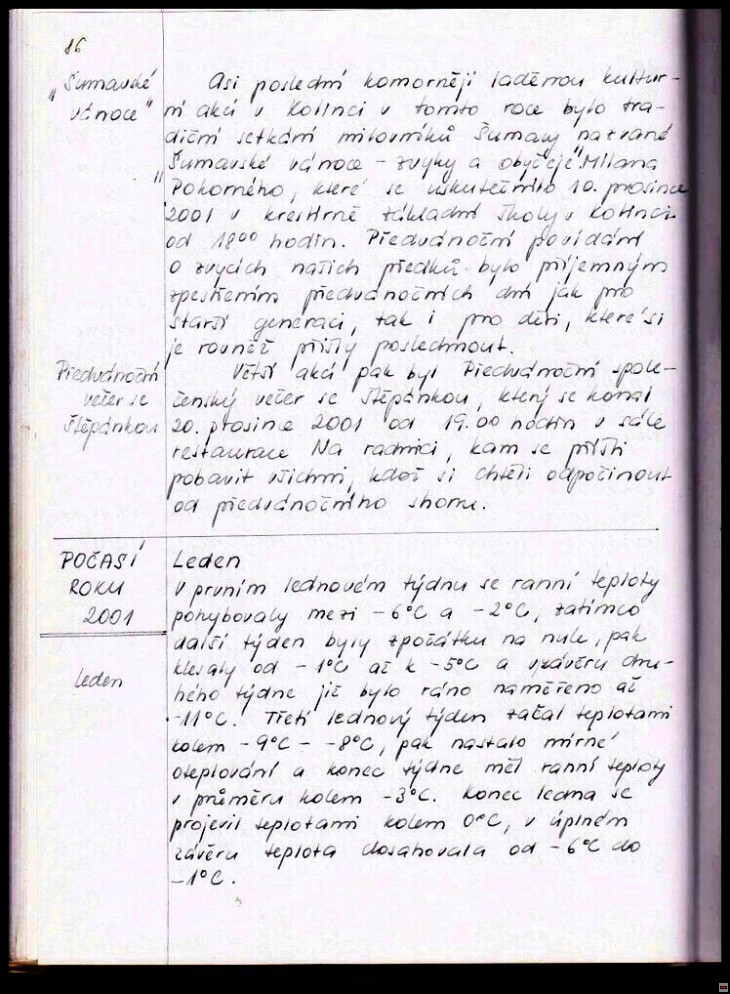 86
„Šumavské
vánoce"
Asi poslední komorněji laděnou kultur-
ní akcí v Kolinci v tomto roce bylo tra-
diční setkání milovníků Šumavy nazvané
„Šumavské vánoce - zvyky a obyčeje" Milana
Pokorného, které se uskutečnilo 10. prosince
2001 v kreslírně Základní školy v Kolinci
od 18⁰⁰ hodin. Předvánoční povídání
o zvycích našich předků bylo příjemným
zpestřením předvánočních dní jak pro
starší generaci, tak i pro děti, které si
je rovněž přišly poslechnout.
Předvánoční
večer se
Štěpánkou
Větší akcí pak byl Předvánoční spole-
čenský večer se Štěpánkou, který se konal
20. prosince 2001 od 19.00 hodin v sále
restaurace Na radnici, kam se přišli
pobavit všichni, kdož si chtěli odpočinout
od předvánočního shonu.
POČASÍ
ROKU
2001
leden
Leden
V prvním lednovém týdnu se ranní teploty
pohybovaly mezi -6°C a -2°C, zatímco
další týden byly zpočátku na nule, pak
klesaly od -1°C až k -5°C a v závěru dru-
hého týdne již bylo ráno naměřeno až
-11°C. Třetí lednový týden začal teplotami
kolem -9°C - -8°C, pak nastalo mírné
oteplování a konec týdne měl ranní teploty
v průměru kolem -3°C. Konec ledna se
projevil teplotami kolem 0°C, v úplném
závěru teplota dosahovala od -6°C do
-1°C.